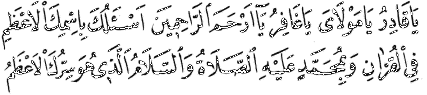 يَاقَادِرُ يَامَوْلَايَ يَاغَافِرُ يَآاَرْحَمَ الرَّاحِمِينَ اَسْئَلُكَ بِاِسْمِكَ اْلاَعْظَمِ
فِي الْقُرْاٰنِ وَبِمُحَمَّدٍ عَلَيْهِ الصَّلَاةُ وَالسَّلَامُ الَّذِي هُوَ سِرُّكَ اْلاَعْظَمُ